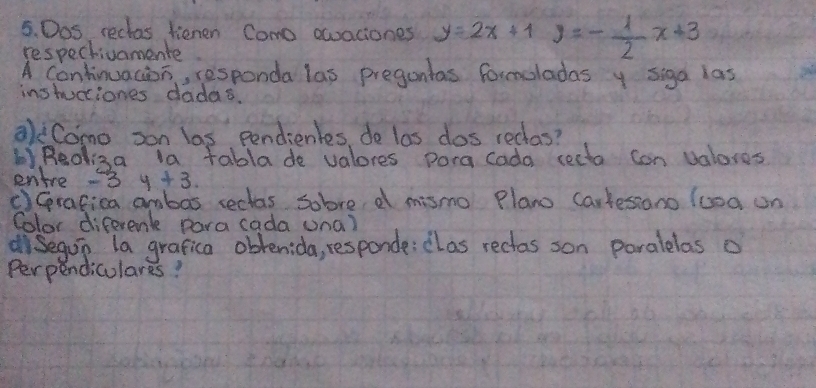 5. Dos rectas tienen Como ecuaciones y=2x+1 y=-1/2 x+3
respectivamente.
A Continuación, responda las preguntas formuladas y siga las
instrucciones dadas.
a) ¿Cómo son las pendientes de las dos rectas?
b) Realiza la tabla de valores para cada recta con valores
entre -3 y +3.
c) Grafica ambas rectas sobre el mismo Plano Cartesiano (usa un
Color diferente para cada una)
d) Según la grafica obtenida, responde: ¿las rectas son paralelas o
Perpendiculares?